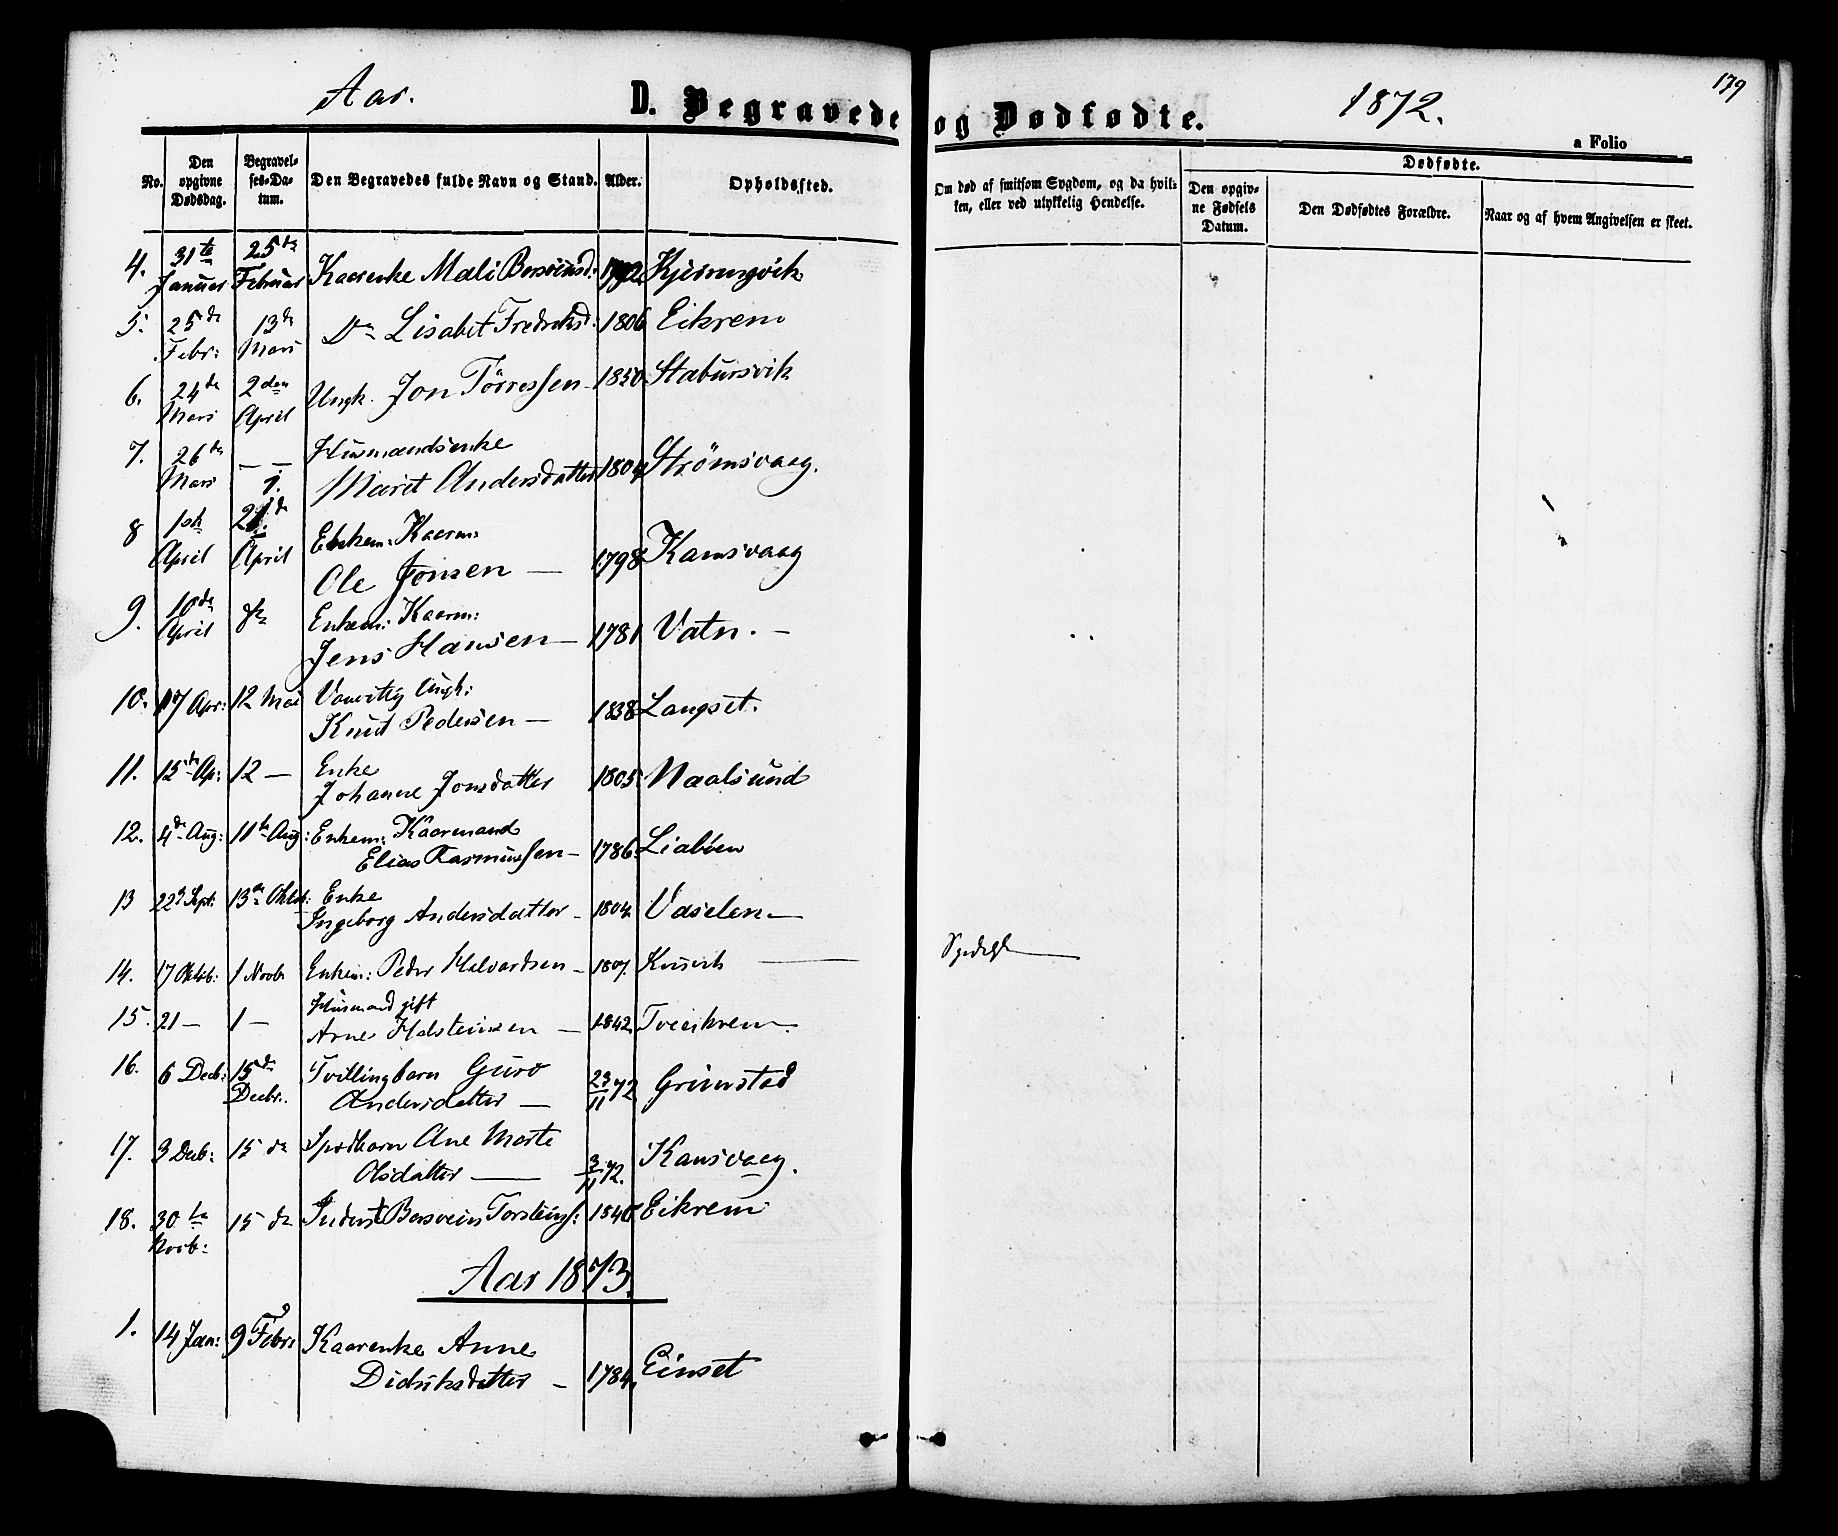 179
Aar. D. Begravede og Dødfødte. 1872.
a Folio
No.
Den opgivne Dødsdag.
Begravel-
ses-Da-
tum.
Den Begravedes fulde Navn og Stand.
Alder.
Opholdssted.
Om død af smitsom Sygdom, og da hvil-
ken, eller ved ulykkelig Hendelse.
Dødfødte.
Den opgiv-
ne Fødsels
Datum.
Den Dødfødtes Forældre.
Naar og af hvem Angivelsen er skeet.
4. 31te Januar 25de Februar Kaarenke Mali 1792 Kjerringvik
5. 25de Febr: 13de Mars Do Lisabet Fredriksd: 1806 Eikrem
6. 24de Mars 2den April Ungk. Jon Tørressen 1850 Stabursvik
7. 26de Mars — — Husmandsenke
Marit Andersdatter 1804 Strömsvaag.
8 1ste April 21de April Enkem: Kaarm:
Ole Jonsen — 1798 Kansvaag
9. 10de April Enkem: Kaarm:
Jens Hansen — 1781 Vatn. —
10. 17 Apr: 12 Mai Vanvittig Ungk:
Knut Pedersen — 1838 Langset.
11. 15de Ap: 12 — Enke
Johanne Jonsdatter 1805 Naalsund
12. 4de Aug: 11te Aug: Enkem: Kaarmand
Elias Rasmussen — 1786 Liabøen
13 22d Sept: 13de Oktob: Enke
Ingeborg Andersdatter — 1804. Vaselen —
14. 17 Oktob: 1 Novbr Enkem: Peder Halvardsen — 1807. —
15. 21 — 1 — Husmand gift
Arne Halsteinsen — 1842 Tveeikrem.
16. 6 Decb: 15de Decbr. Tvillingbarn Guro
Andersdatter — 23/11 72 Grimstad
17. 3 Decb: 15 de Spædbarn Ane Marte
Olsdatter — 3/11 72. Kansvaag.
18. 30te Novb: 15 de Inderst Bersvein Torsteins: 1840 Eikrem
Aar 1873.
1. 14 Jan: 9 Febr: Kaarenke Anne
Didriksdatter — 1784. Einset